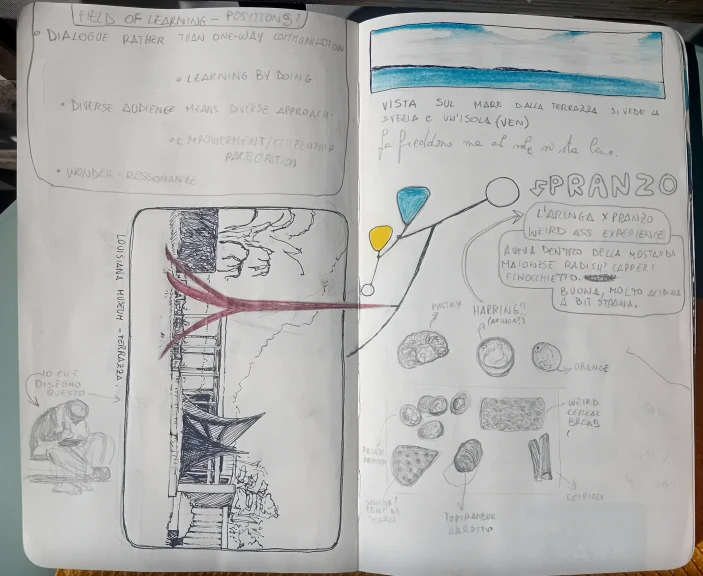 FIELD OF LEARNING - POSITIONS?
• DIALOGUE RATHER THAN ONE-WAY COMMUNICATION
• LEARNING BY DOING
• DIVERSE AUDIENCE MEANS DIVERSE APPROACH.
• EMPOWERMENT/CITIZENSHIP
PARTICIPATION
• WONDER - RESSONANCE
LOUISIANA MUSEUM - TERRAZZA.
IO CHE
DISEGNO
QUESTO
VISTA SUL MARE DALLA TERRAZZA SI VEDE LA
SVEZIA E UN'ISOLA (VEN)
fa freddino ma al sole si sta
PRANZO
L'ARINGA X PRANZO
WEIRD ASS EXPERIENCE
AVEVA DENTRO DELLA MOSTARDA
MAIONESE RADISH! CAPPERI
FINOCCHIETTO.
BUONA, MOLTO
A BIT STRONG.
PASTRY
HARRING!!
(ARINGA!!)
ORANGE
WEIRD
CEREAL
BREAD
TOPINAMBUR
ARROSTO